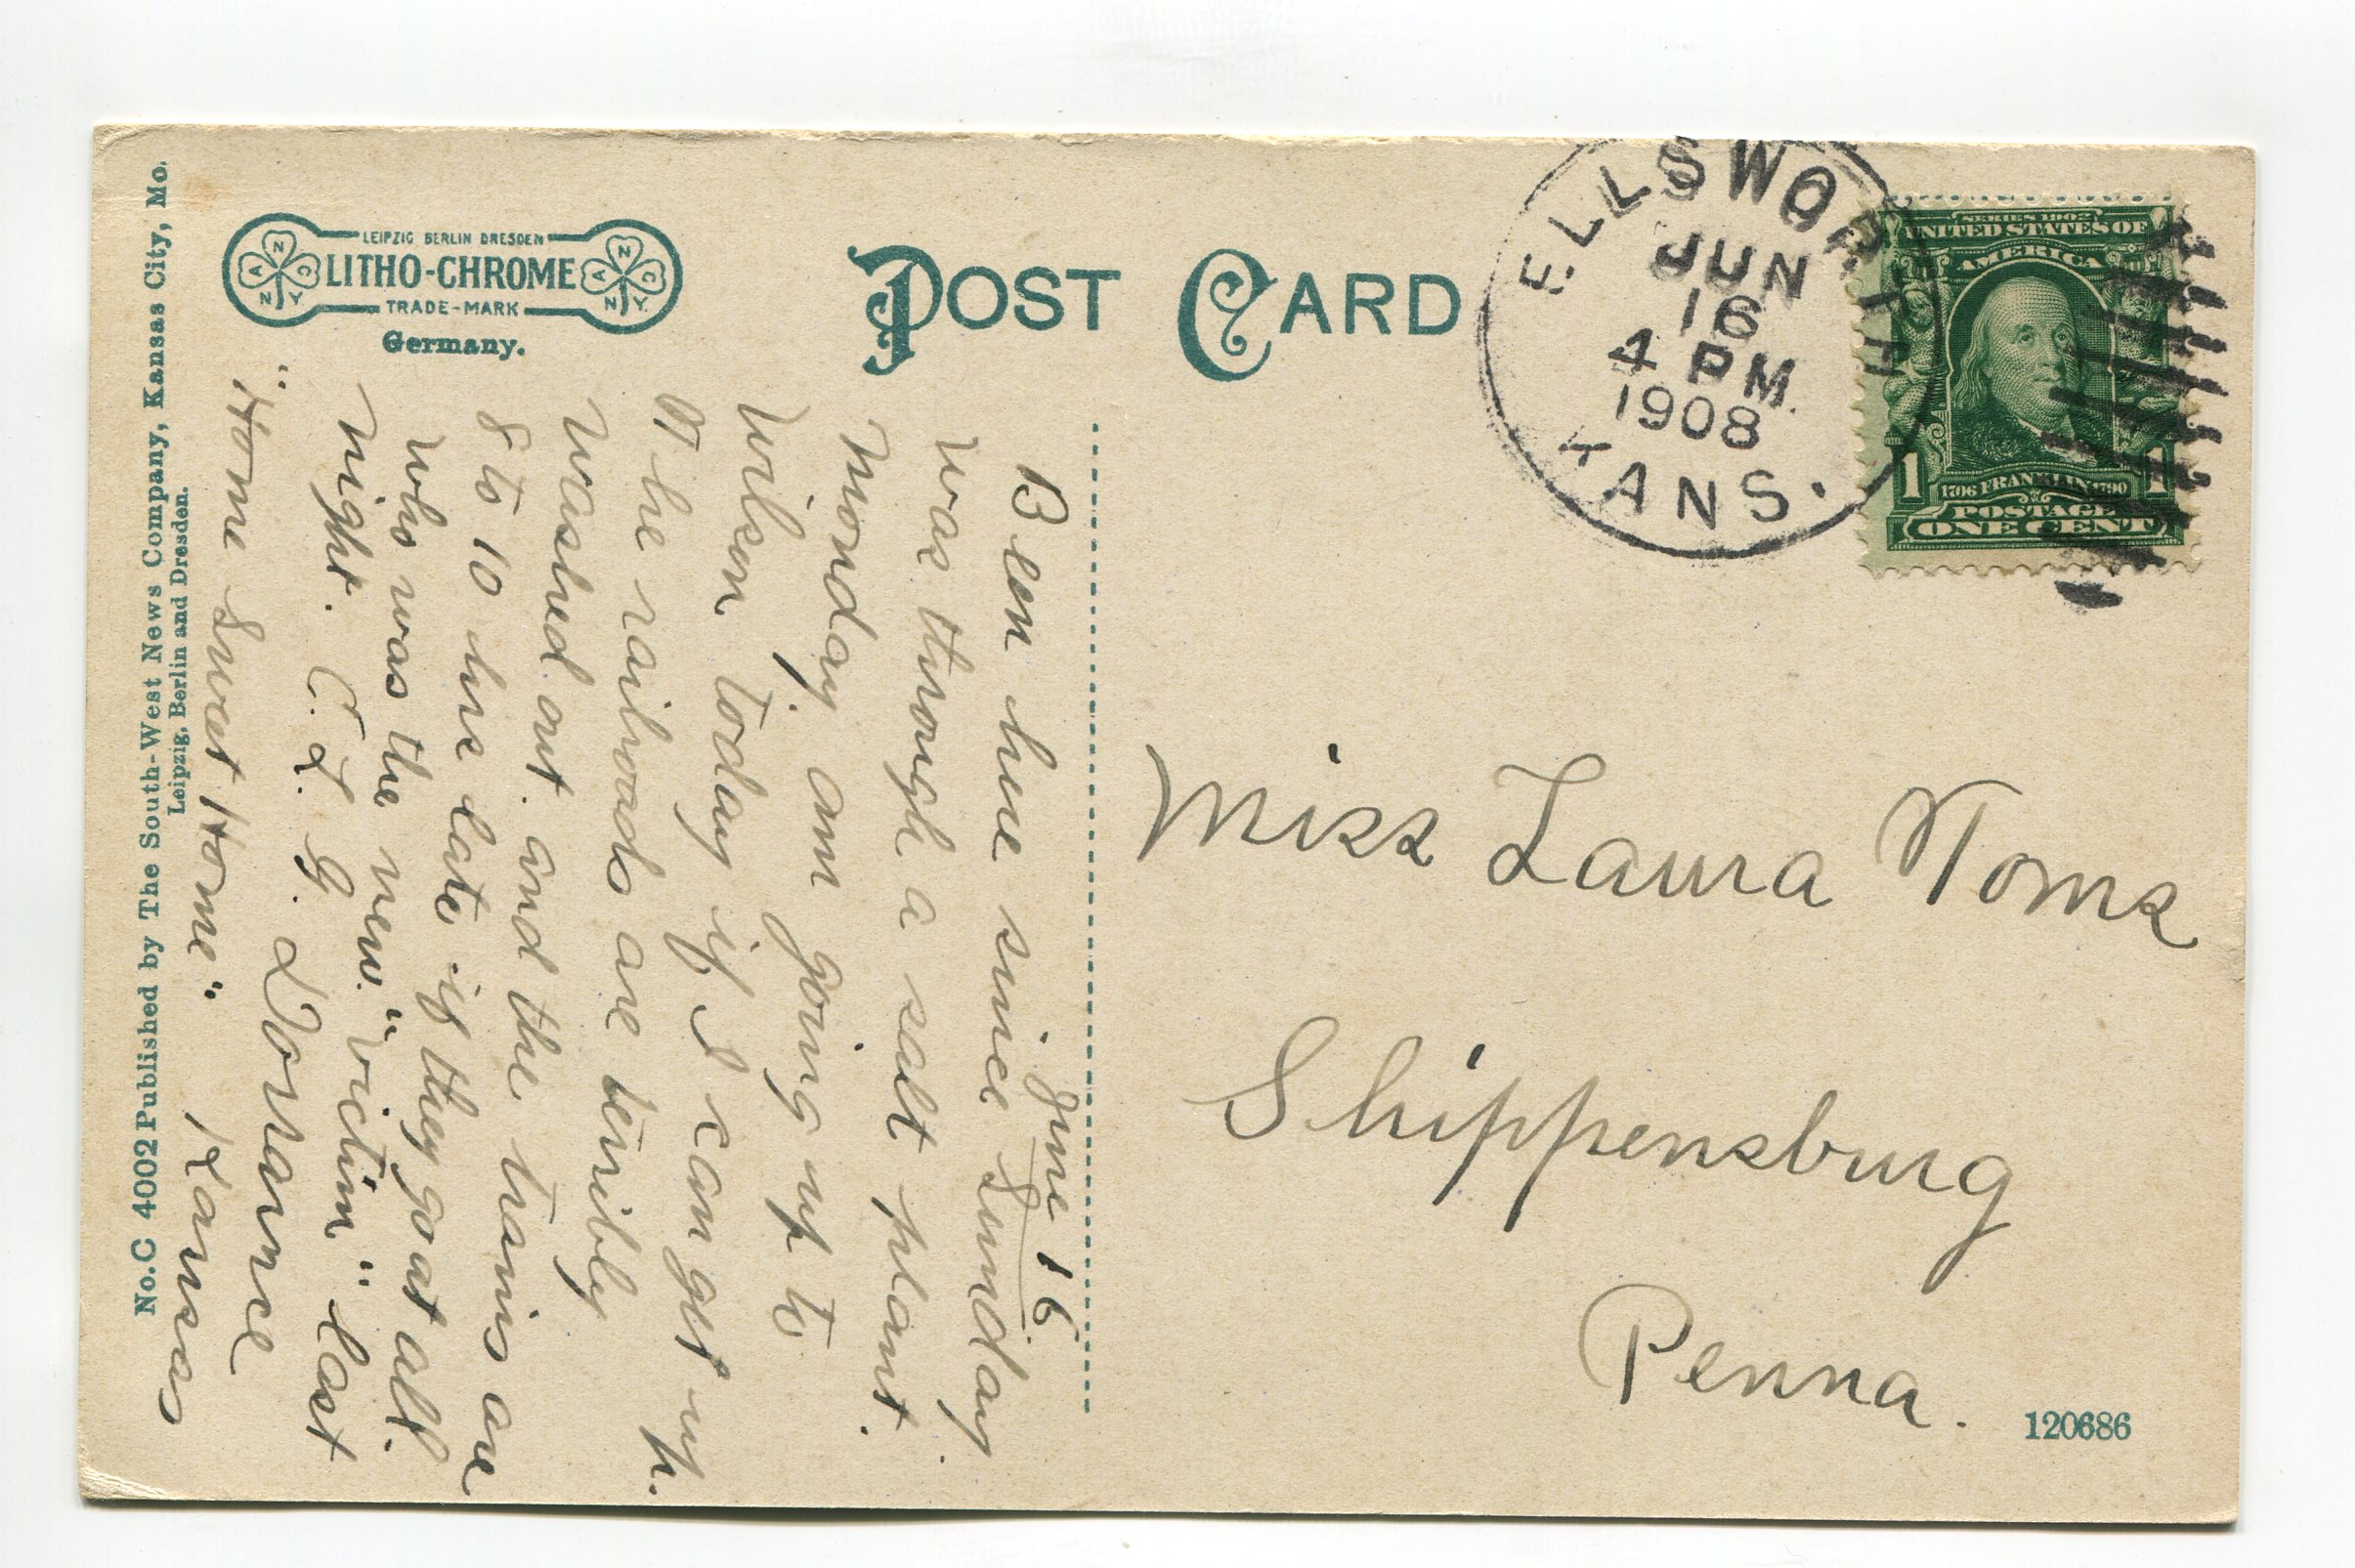 No. C 4002 Published by The South-West News Company, Kansas City, Mo.
Leipzig, Berlin and Dresden.
LEIPZIG BERLIN DRESDEN
LITHO-CHROME
TRADE-MARK
Germany.
A N N C N Y
A N N C N Y
POST CARD
ELLSWORTH
JUN
16
4 PM.
1908
KANS.
SERIES 1902
UNITED STATES OF
AMERICA
1706 FRANKLIN 1790
POSTAGE
1 1
ONE CENT
June 16.
Been here since Sunday.
Was through a salt plant
Monday. am going up to
Wilson today if I can get up.
The railroads are terribly
washed out. and the trains are
8 to 10 hrs late if they go at all.
Who was the new "victim" last
night. C. L. G. Dorrance
"Home Sweet Home" Kansas
Miss Laura Noms
Shippensburg
Penna.
120686